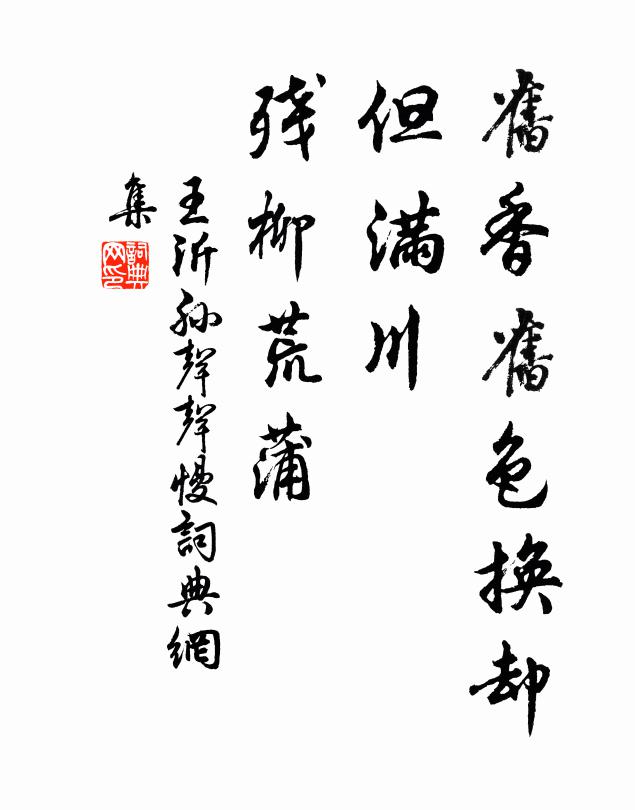 舊香舊色換却
但滿川
殘柳荒蒲
王沂孫聲聲慢詞典網
集
詞典網印